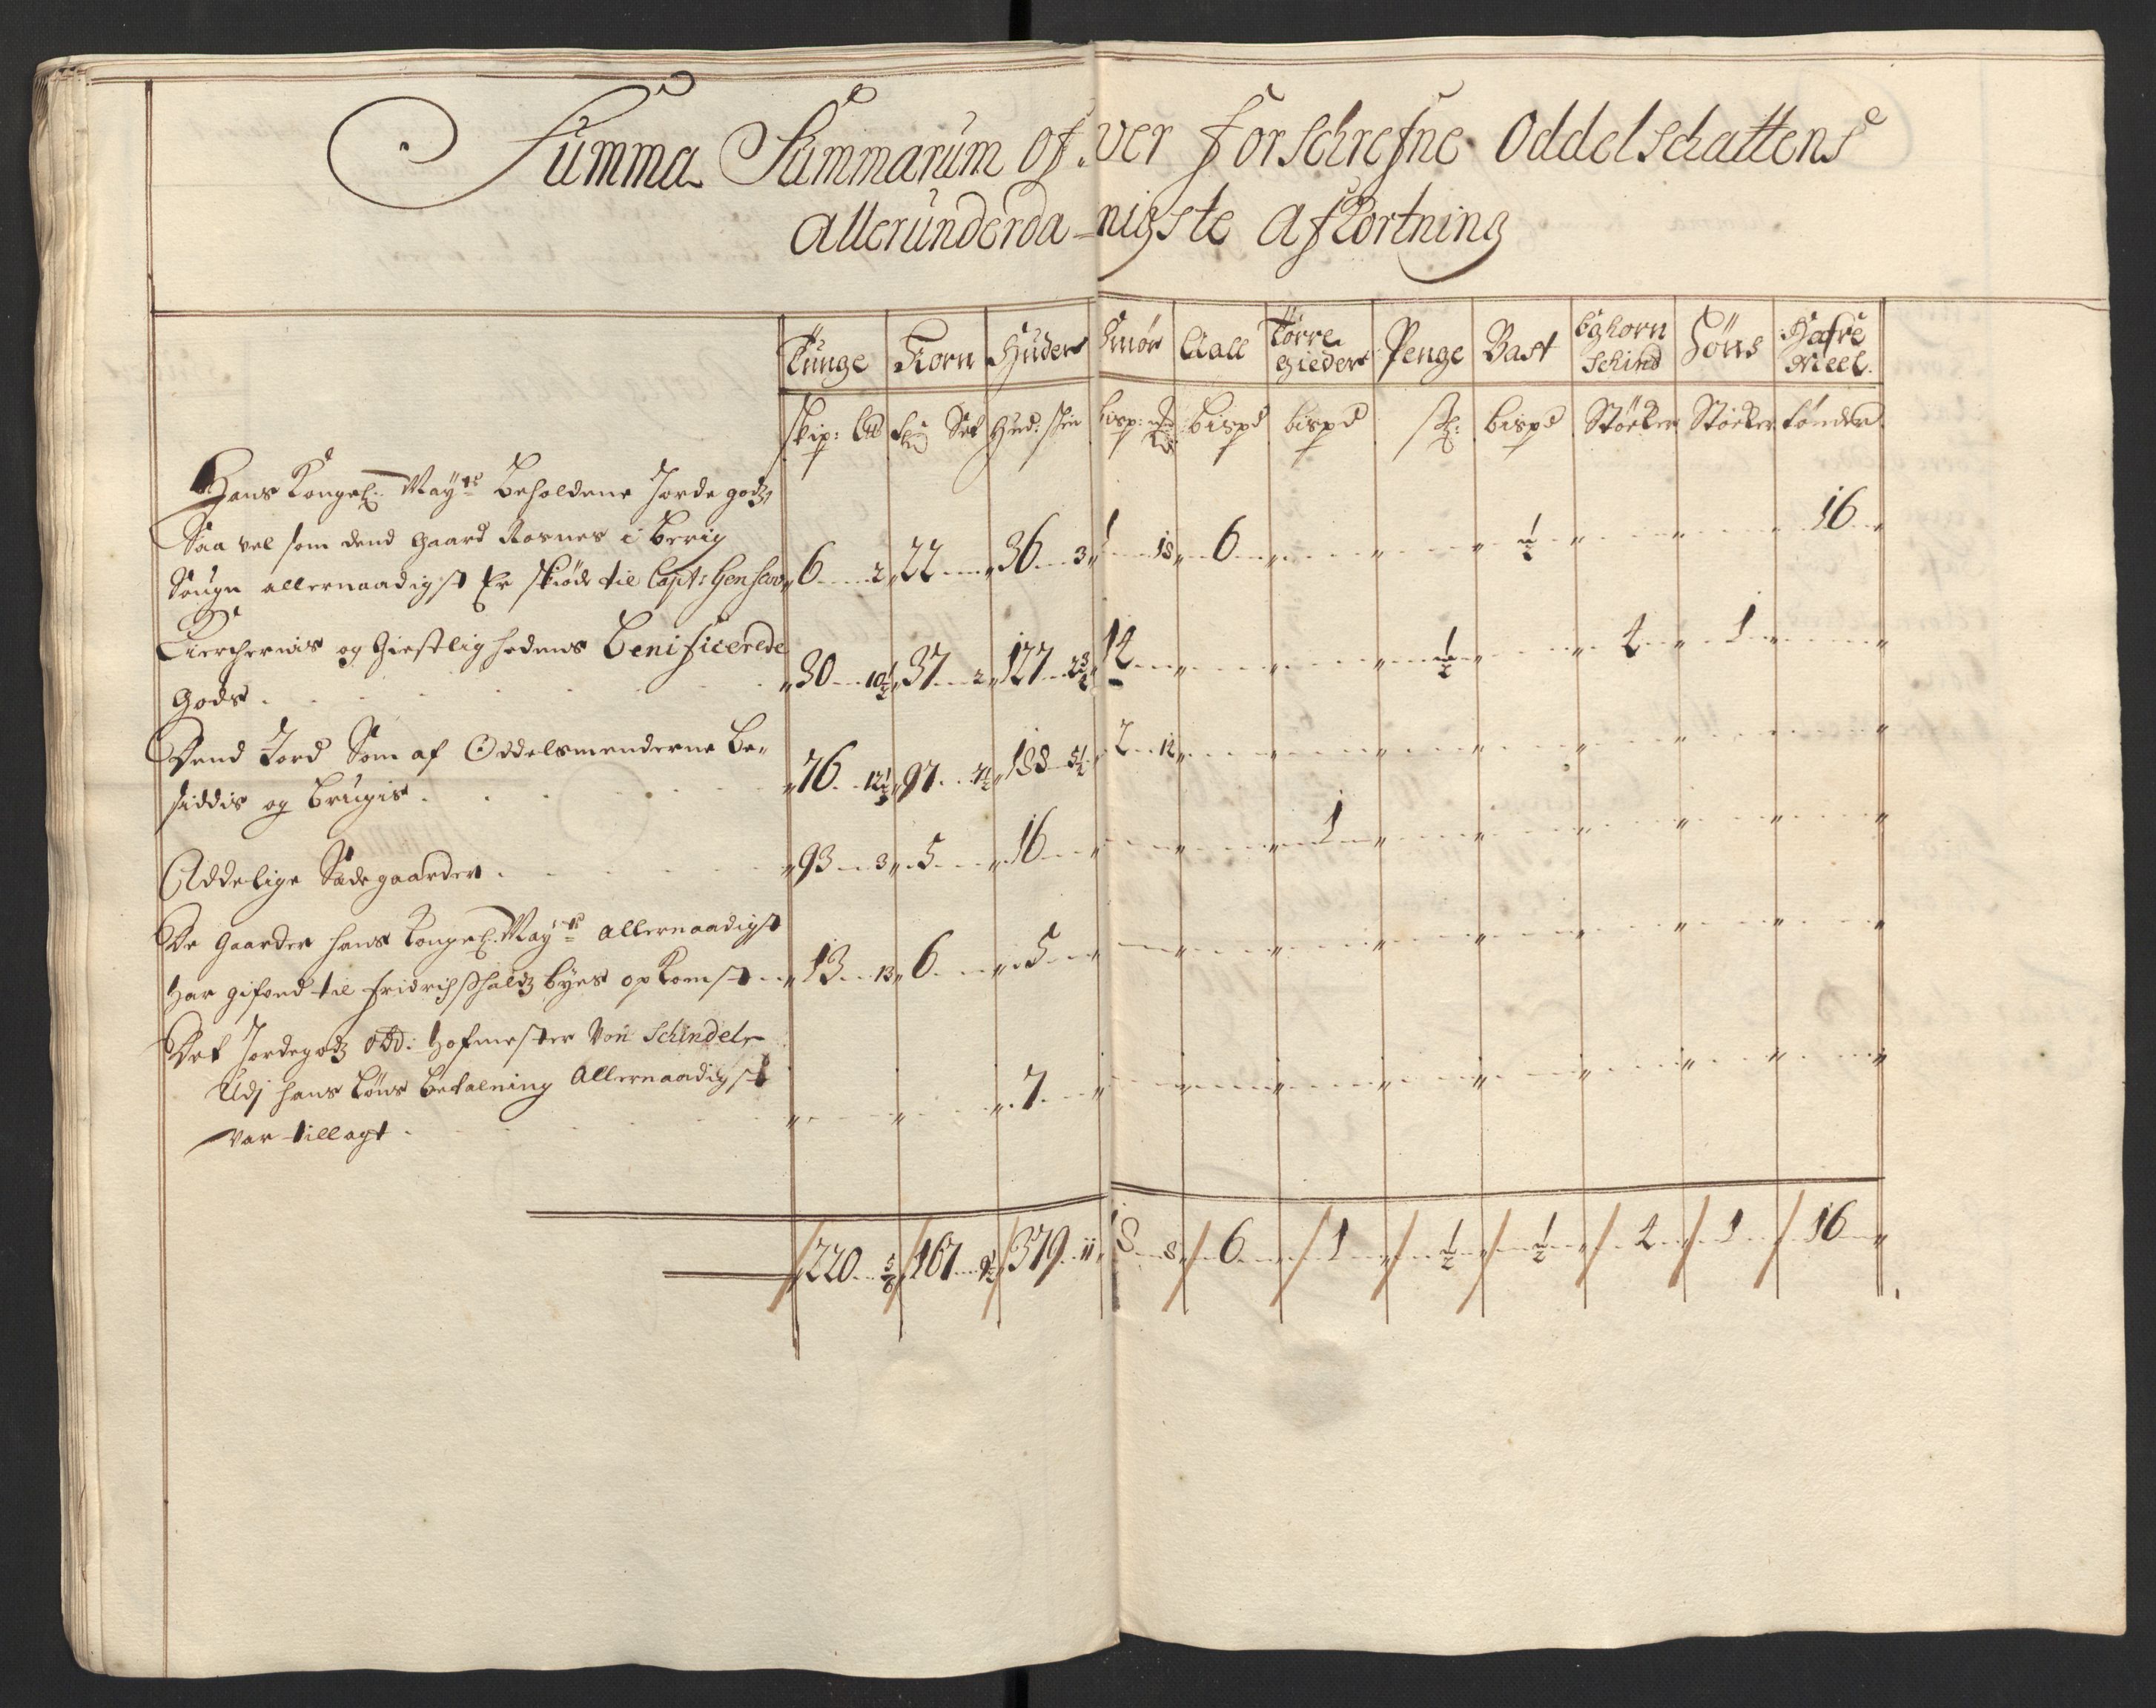 Summa Summarum of ver forschrefne Oddelschattens
allerunderda=nigste afkortning
Tunge Korn Huder Smør Aall Tørre gieder Penge Bast Eghorn Schind Høns Hafre Meel.
skip: L℔ Set Hud: skin bispd bispd bispd Støcker Støcker tønder
Hans Kongel: Mayts Beholdene Jorde godz
Saa vel som dend gaard Rosnes i Berig
Sougn allernaadigst Er skiødt til Capt: 6 2 22 36 3 1 18 6 ½ 16
Kierchernis og Giestlighedens Benificerede
gods 30 10½ 37 2 127 12 ½ 2 1
Dend Jord Som af Oddelsmenderne Be-
siddis og Brugis 76 12½ 97 188 2 12
Addelige Sædegaarder 93 3 5 16 1
De gaarder hans Kongel: Mayts allernaadigst
har gifved til fridrichshaldz byes opkomst 13 13 6 5
Det Jordegodz Hofmester Von Schindel
Udj hans Løns betalning Allernaadigst
var tillagt 7
220 167 379 11 8 8 6 1 ½ ½ 2 1 16